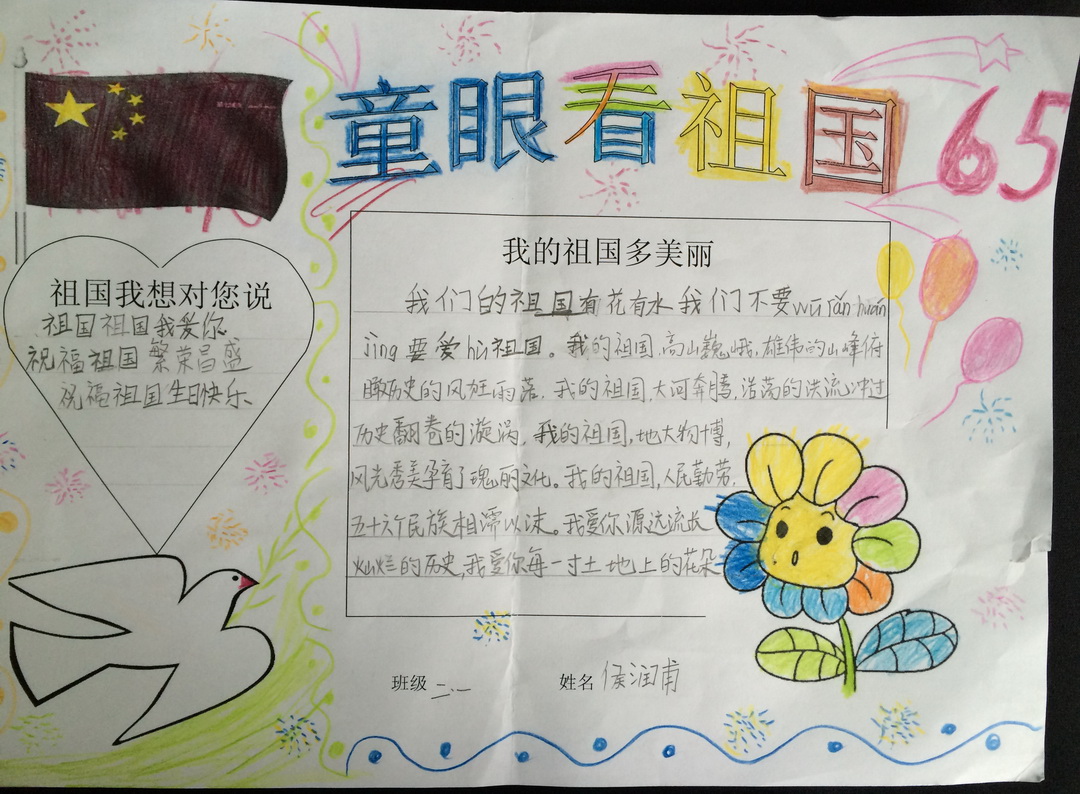 童眼看祖国
65
祖国我想对您说
祖国祖国我爱你
祝福祖国 繁荣昌盛
祝福祖国生日快乐
我的祖国多美丽
我们的祖国有花有水我们不要wū rǎn huán
jìng要爱hù祖国。我的祖国,高山巍峨,雄伟的山峰俯
瞰历史的风狂雨落,我的祖国,大河奔腾,浩荡的洪流冲过
历史翻卷的漩涡,我的祖国,地大物博,
风光秀美孕育了瑰丽文化。我的祖国,人民勤劳,
五十六个民族相濡以沫。我爱你源远流长
灿烂的历史,我爱你每一寸土地上的花朵
班级 二.一 姓名 侯润甫